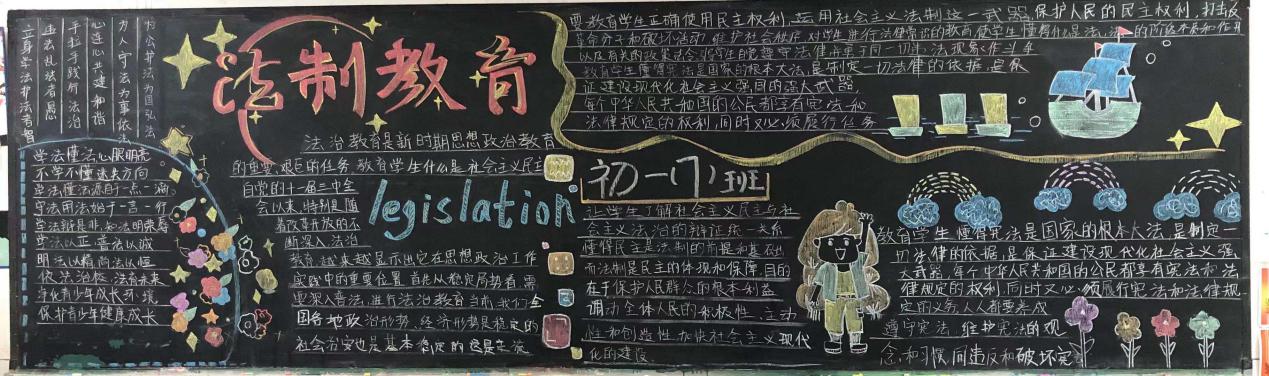 构公护法为国弘法
为人守法为事依法
心连心共建和谐
手拉手践行法治
违法乱纪者愚
立身学法护法者智
学法懂法心眼明亮
不学不懂迷失方向
学法懂法源自一点一滴
守法用法始于一言一行
学法以正普法以诚
明法以精尚法以恒
依法治校法育未来
净化青少年成长环境
保护青少年健康成长
法制教育
法治教育是新时期思想政治教育
的重要、艰巨的任务，教育学生什么是社会主义民主
自党的十一届三中全
会以来，特别是随
着改革开放的不
断深入，法治
教育越来越显示出它在思想政治工作
实践中的重要位置，首先从稳定局势看，需
要深入普法，进行法治教育当前，我们全
国各地政治形势、经济形势是稳定的
社会治安也是基本稳定的
legislation
要教育学生正确使用民主权利，运用社会主义法制这一武器，保护人民的民主权利，打击反
革命分子和破坏活动，维护社会秩序，对学生进行法律常识的教育，使学生懂得有什么法
以及有关的政策法令
教育学生懂得宪法是国家的根本大法，是制定一切法律的依据，是保
证建设现代化社会主义强国的强大武器，
每个中华人民共和国的公民都享有宪法和
法律规定的权利，同时又必须履行任务
初一（7）班
让学生了解社会主义民主与社
会主义法治的辩证统一关系
懂得民主是法制的前提和基础，
而法制是民主的体现和保障，目的
在于保护人民群众的根本利益
调动全体人民的积极性、主动
性和创造性，加快社会主义现代
化的建设。
教育学生懂得宪法是国家的根本大法，是制定一
切法律的依据，是保证建设现代化社会主义强
大武器，每个中华人民共和国的公民都享有宪法和法
律规定的权利，同时又必须履行宪法和法律规
定的义务，人人都要养成
遵守宪法、维护宪法的观
念和习惯，同违反和破坏宪